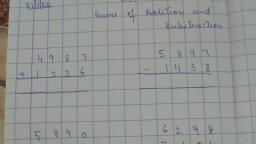 Sums of Addition and
Substraction
4 9 8 7
+ 1 2 3 6
5 8 9 7
- 1 4 3 8
5 8 9 0
6 2 9 8